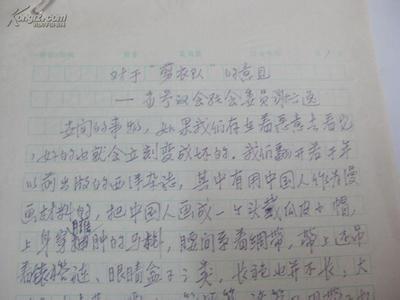 Kongfz.com
对于“剪衣队”的意见
—— 会驻会委员谢六逸
世间的事物，如果我们存在着恶意去看它
，好的也就会立刻变成坏的。我们翻开若干年
以前出版的西洋杂志，其中有用中国人作为漫
画材料的，把中国人画成一个头戴瓜皮小帽，
上身穿臃肿的马褂，腰间系着绸带，带上还吊
着钱搭裢、眼睛盒子之类，长袍也并不长，大